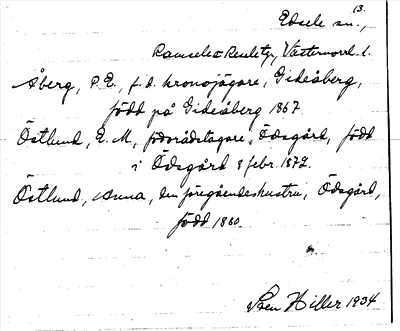 13.
Edsele sn.,
Ramsele o Resele tg, Västernorrl. l.
Åberg, P. E., f. d. kronojägare, Gideåberg,
född på Gideåberg 1867.
Östlund, E. M., föderådstagare, Ödsgård, född
i Ödsgård 8 febr. 1872.
Östlund, Anna, den föregåendes hustru, Ödsgård,
född 1880.
Sven Hiller 1934